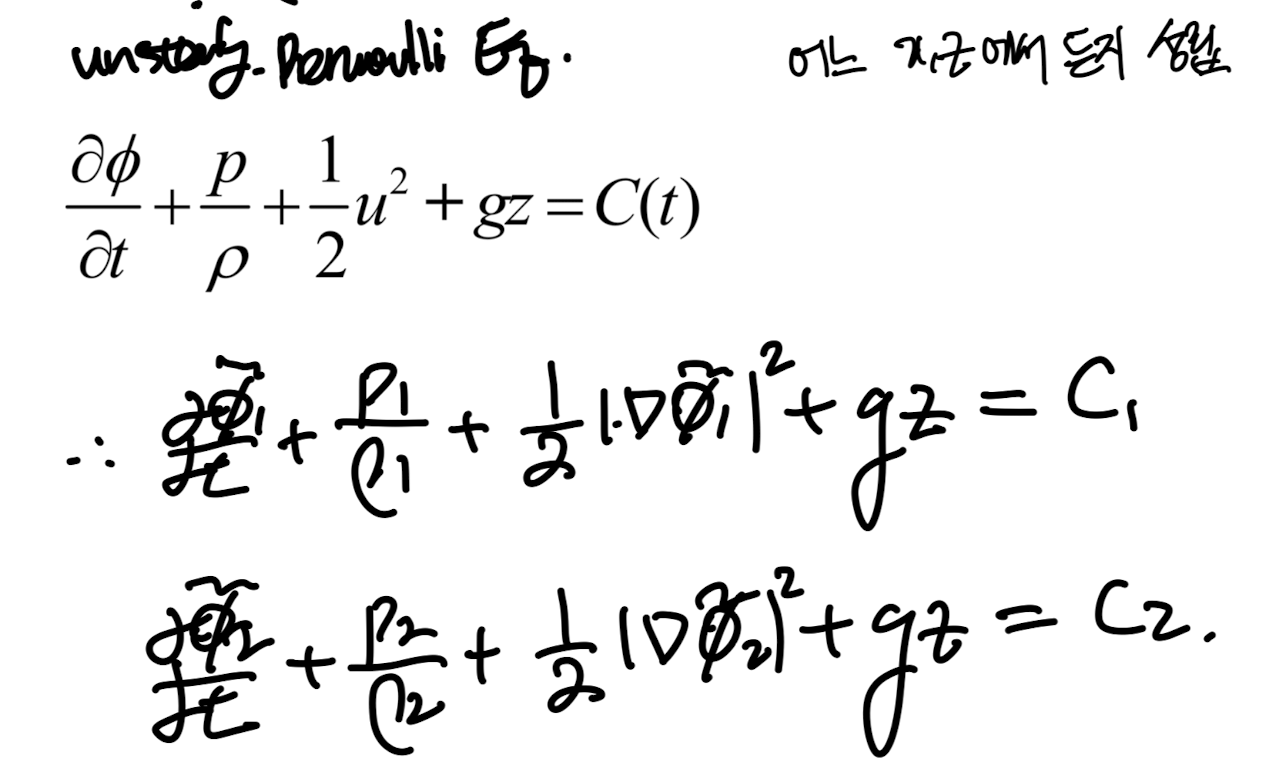 unsteady. Bernoulli Eq. 어느 지점에서 든지 성립
∂ϕ/∂t + p/ρ + 1/2 u² + gz = C(t)
∴ ∂ϕ̃₁/∂t + P₁/ρ₁ + 1/2 |∇ϕ̃₁|² + gz = C₁
∂ϕ̃₂/∂t + P₂/ρ₂ + 1/2 |∇ϕ̃₂|² + gz = C₂.